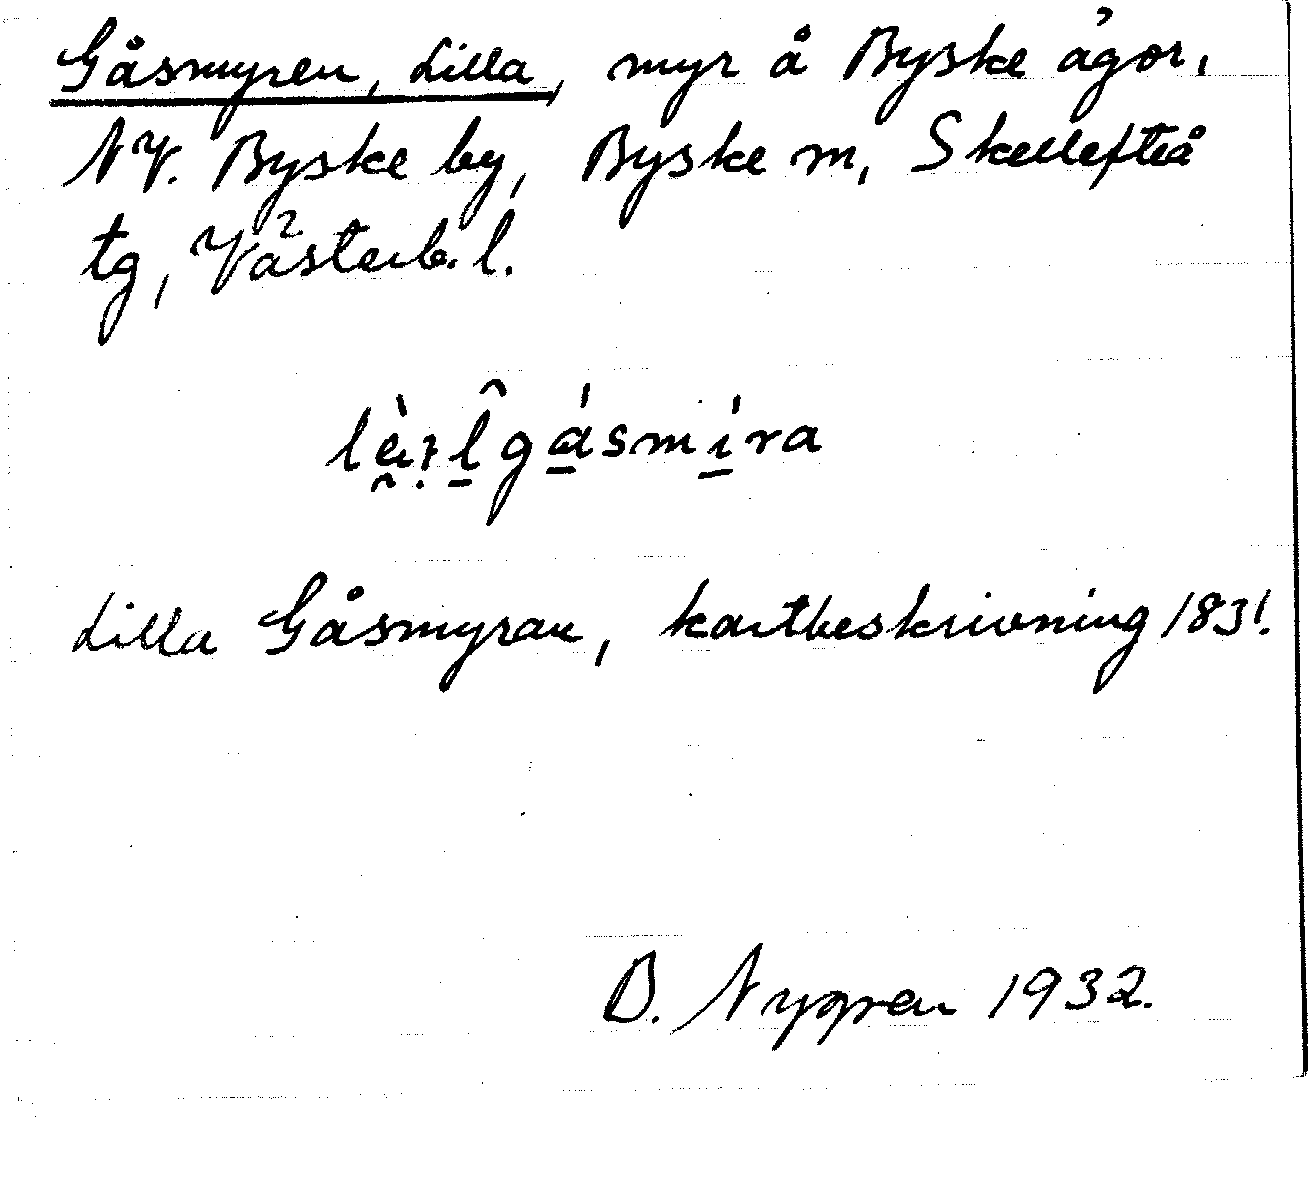 Gåsmyren, Lilla, myr å Byske ägor,
NV. Byske by, Byske sn, Skellefteå
tg, Västerb. l.
Lilla Gåsmyran, kartbeskrivning 1831.
B. Nygren 1932.